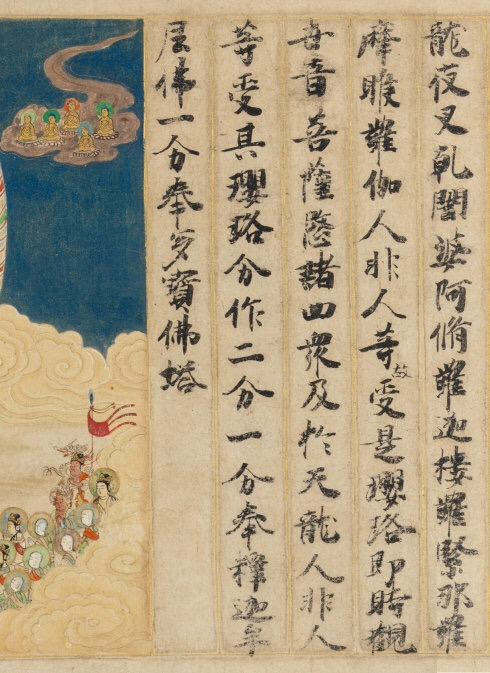 龍夜叉乹闥婆阿脩羅迦樓羅緊那羅
摩睺羅伽人非人等故受是瓔珞即時觀
世音菩薩愍諸四衆及於天龍人非人
等受其瓔珞分作二分一分奉釋迦牟
尼佛一分奉多寶佛塔